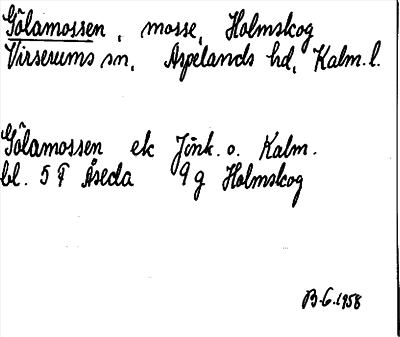 Gölamossen, mosse, Holmskog
Virserums sn, Aspelands hd, Kalm. l.
Gölamossen ek Jönk. o. Kalm.
bl. 5 F Åseda 9 g Holmskog
B.G. 1958